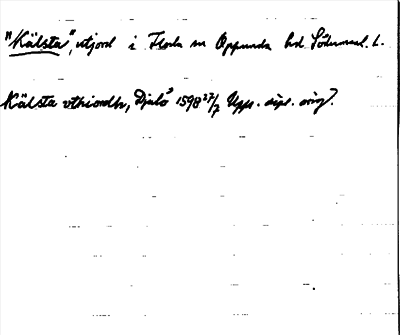 "Kälsta", utjord i Floda sn Oppunda hd. Södermanl. L.
Kälsta vthiordh, Djulö 1598 27/7 Upps. dipl. orig.